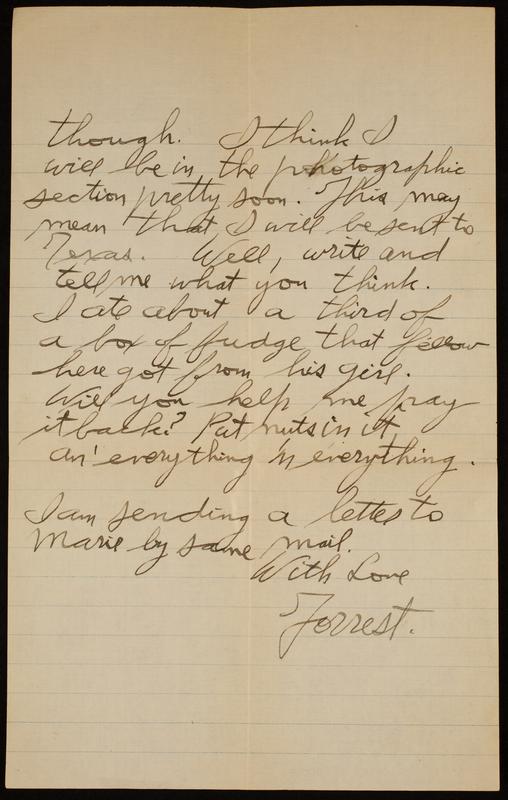 though. I think I
will be in the photographic
section pretty soon. This may
mean that I will be sent to
Texas. Well, write and
tell me what you think.
I ate about a third of
a box of fudge that fellow
here got from his girl.
Will you help me pay
it back? Put nuts in it
an' everything 'n everything.
I am sending a letter to
Marie by same mail.
With Love
Forrest.